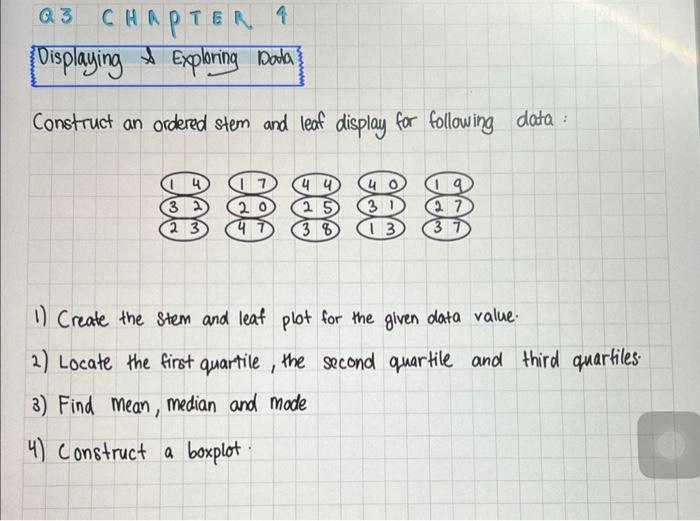 Q3 CHAPTER 4
Displaying & Exploring Data
Construct an ordered stem and leaf display for following data :
14 17 44 40 19
32 20 25 31 27
23 47 38 13 37
1) Create the stem and leaf plot for the given data value.
2) Locate the first quartile, the second quartile and third quartiles.
3) Find mean, median and mode
4) Construct a boxplot.